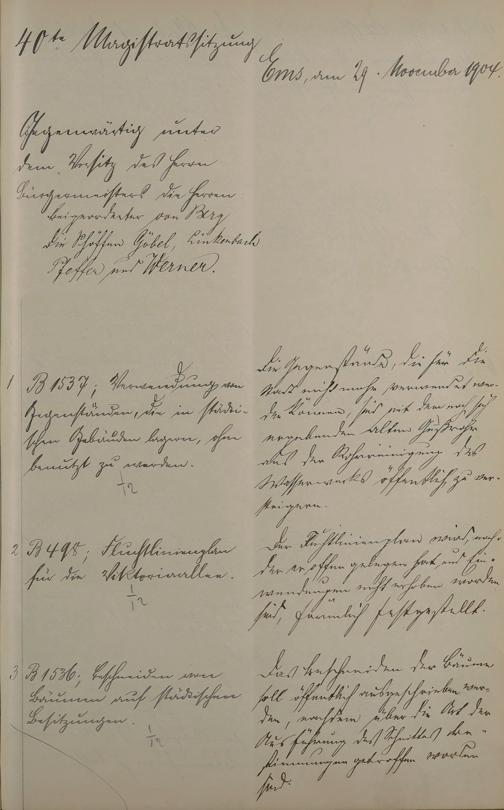 40te Magistratssitzung
Ems, den 29. November 1904.
Gegenwärtig unter
dem Vorsitz des Herrn
Bürgermeisters die Herren
Beigeordneter von Berg
die Schöffen Göbel, Linkenbach
Pfeffer und Werner.
1 B 1537; Verwendung von
Gegenständen, die in städti-
schen Gebäuden lagern, ohne
benutzt zu werden.
1/12
Die Gegenstände, die für die
Stadt nicht mehr verwendet wer-
den können, sind mit dem noch sich
ergebenden alten Gußrohr
aus der Rohrreinigung des
Wasserwerks öffentlich zu ver-
steigern.
2 B 498; Fluchtlinienplan
für die Viktoriaallee.
1/12
Der Fluchtlinienplan wird, nach-
dem er offen gelegen hat und Ein-
wendungen nicht erhoben worden
sind, förmlich festgestellt.
3 B 1536; Beschneiden von
Bäumen auf städtischen
Besitzungen.
1/12
Das Beschneiden der Bäume
soll öffentlich ausgeschrieben wer-
den, nachdem über die Art der
Ausführung des Schnittes Be-
stimmungen getroffen worden
sind.